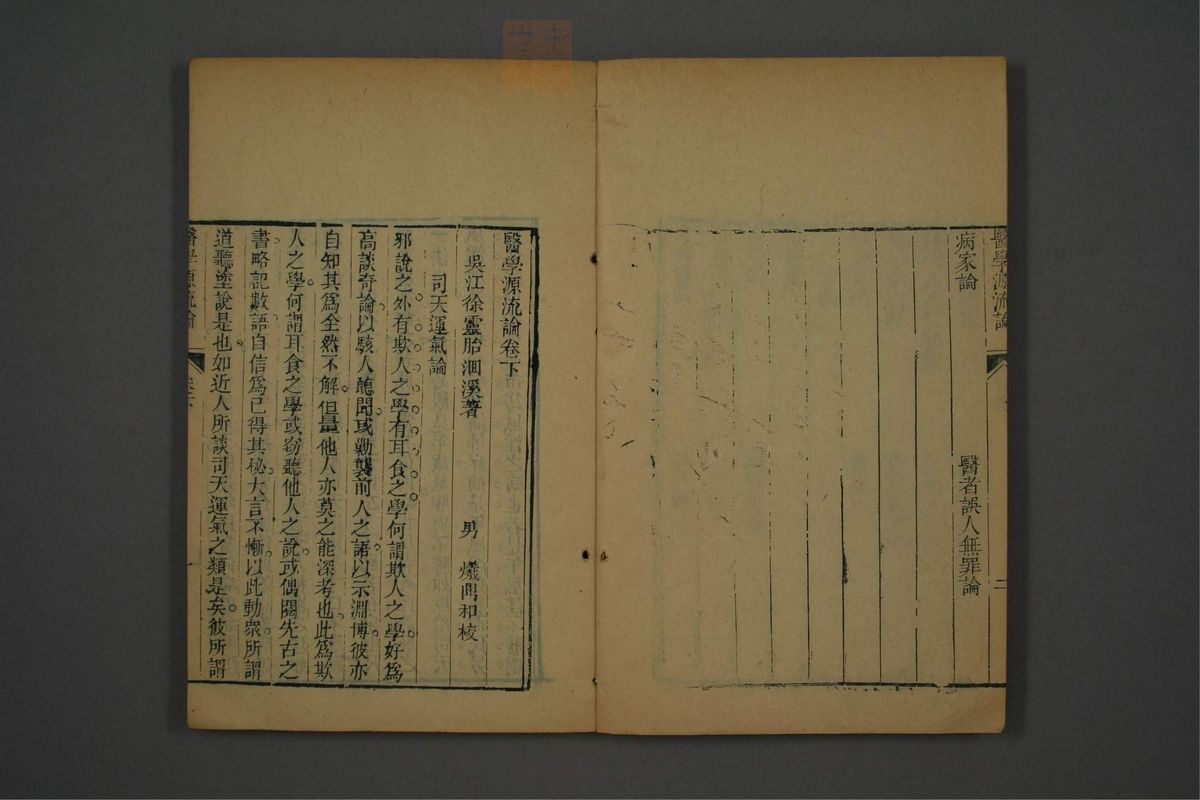 醫學源流論
二
醫者誤人無罪論
病家論
醫學源流論卷下
吳江徐靈胎洄溪著 男 爔鼎和校
司天運氣論
邪說之外有欺人之學有耳食之學何謂欺人之學好爲
高談奇論以駭人聽聞或勦襲前人之語以示淵博彼亦
自知其爲全然不解但量他人亦莫之能深考也此爲欺
人之學何謂耳食之學或窃聽他人之說或偶閱先古之
書略記數語自信爲已得其秘大言不慚以此動衆所謂
道聽塗說是也如近人所談司天運氣之類是矣彼所謂
醫學源流論
卷下
一